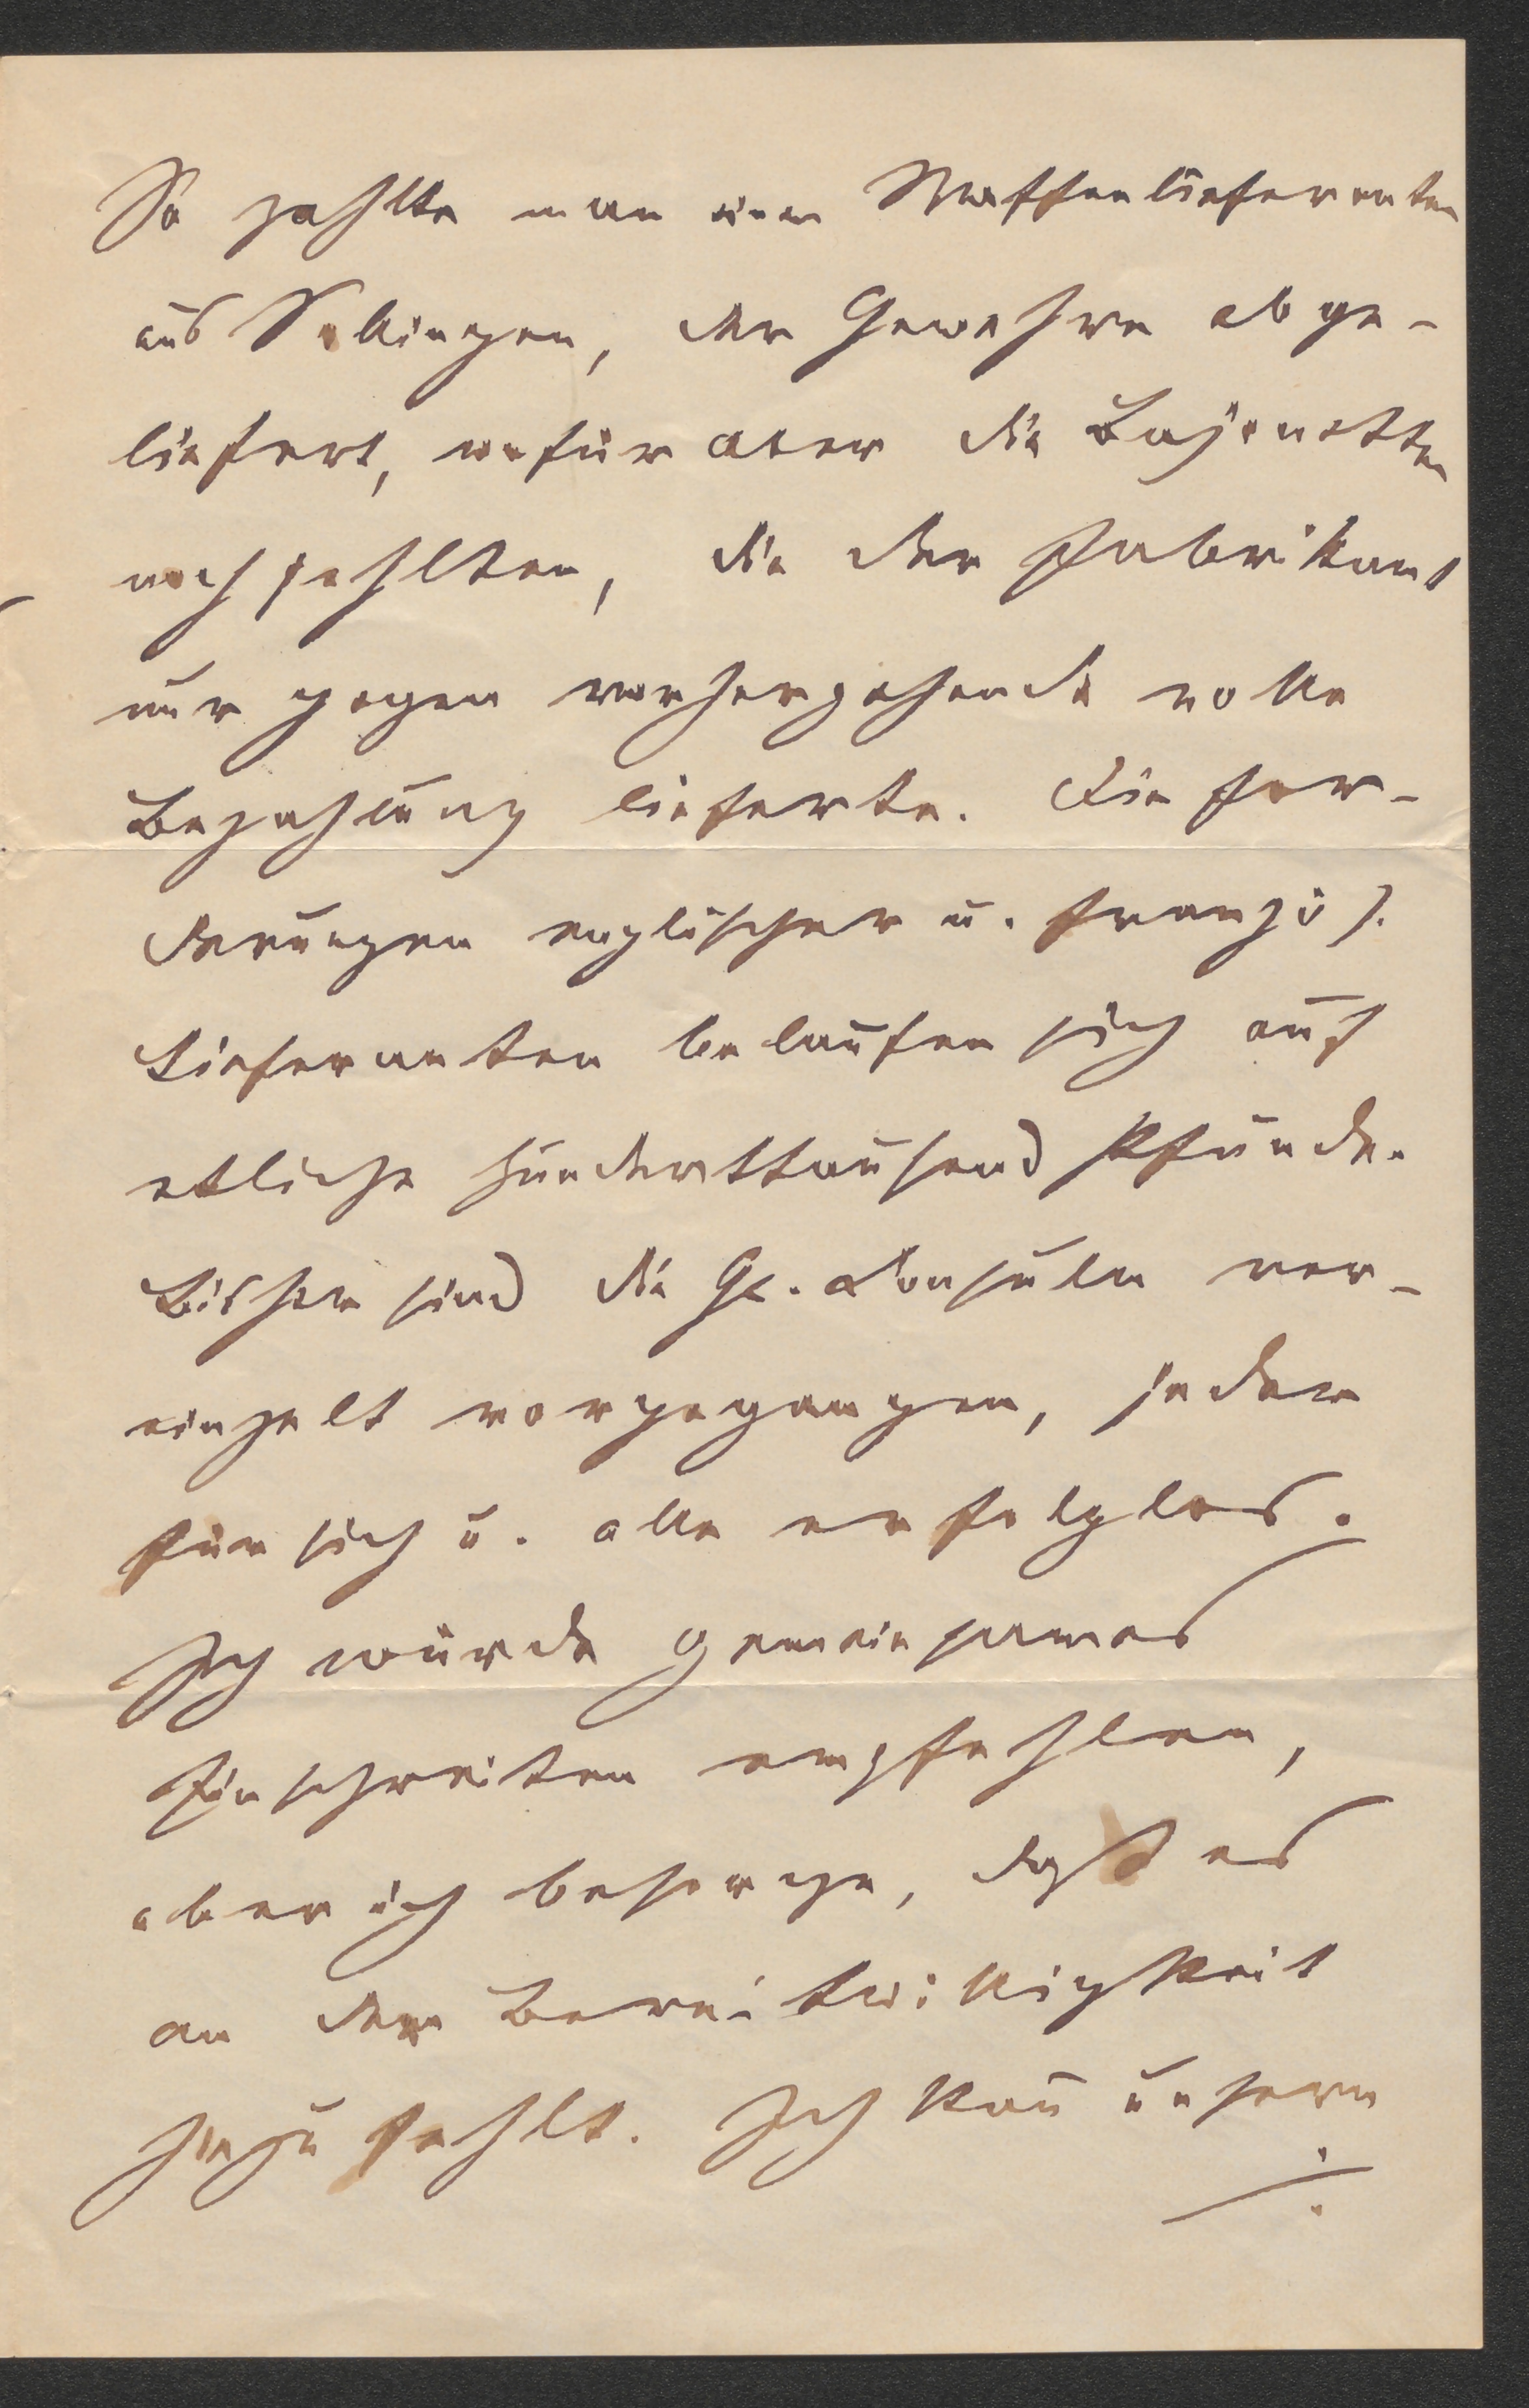 So zahlte man einem Waffenlieferanten
aus Solingen, der Gewehre abge-
liefert, wofür aber die Bajonetten
noch fehlten, die der Fabrikant
nur gegen vorhergehende volle
Bezahlung lieferte. Die For-
derungen englischer u. französ.
Lieferanten belaufen sich auf
etliche hunderttausend Pfunde.
Bisher sind die Gl. Konsuln ver-
einzelt vorgegangen, jeder
für sich u. alle erfolglos.
Ich würde gemeinsames
Einschreiten empfehlen,
aber ich besorge, daß es
an der Bereitwilligkeit
hiezu fehlt. Ich kan̄ unsern
./.